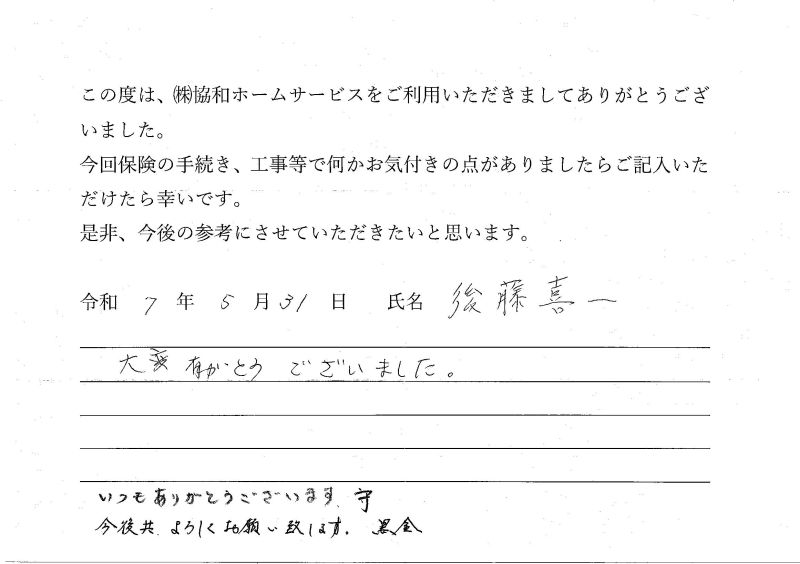 この度は、㈱協和ホームサービスをご利用いただきましてありがとうござ
いました。
今回保険の手続き、工事等で何かお気付きの点がありましたらご記入いた
だけたら幸いです。
是非、今後の参考にさせていただきたいと思います。
令和 7 年 5 月 31 日 氏名 後藤喜一
大変有がとうございました。
いつもありがとうございます。守
今後共よろしくお願い致します。黒金